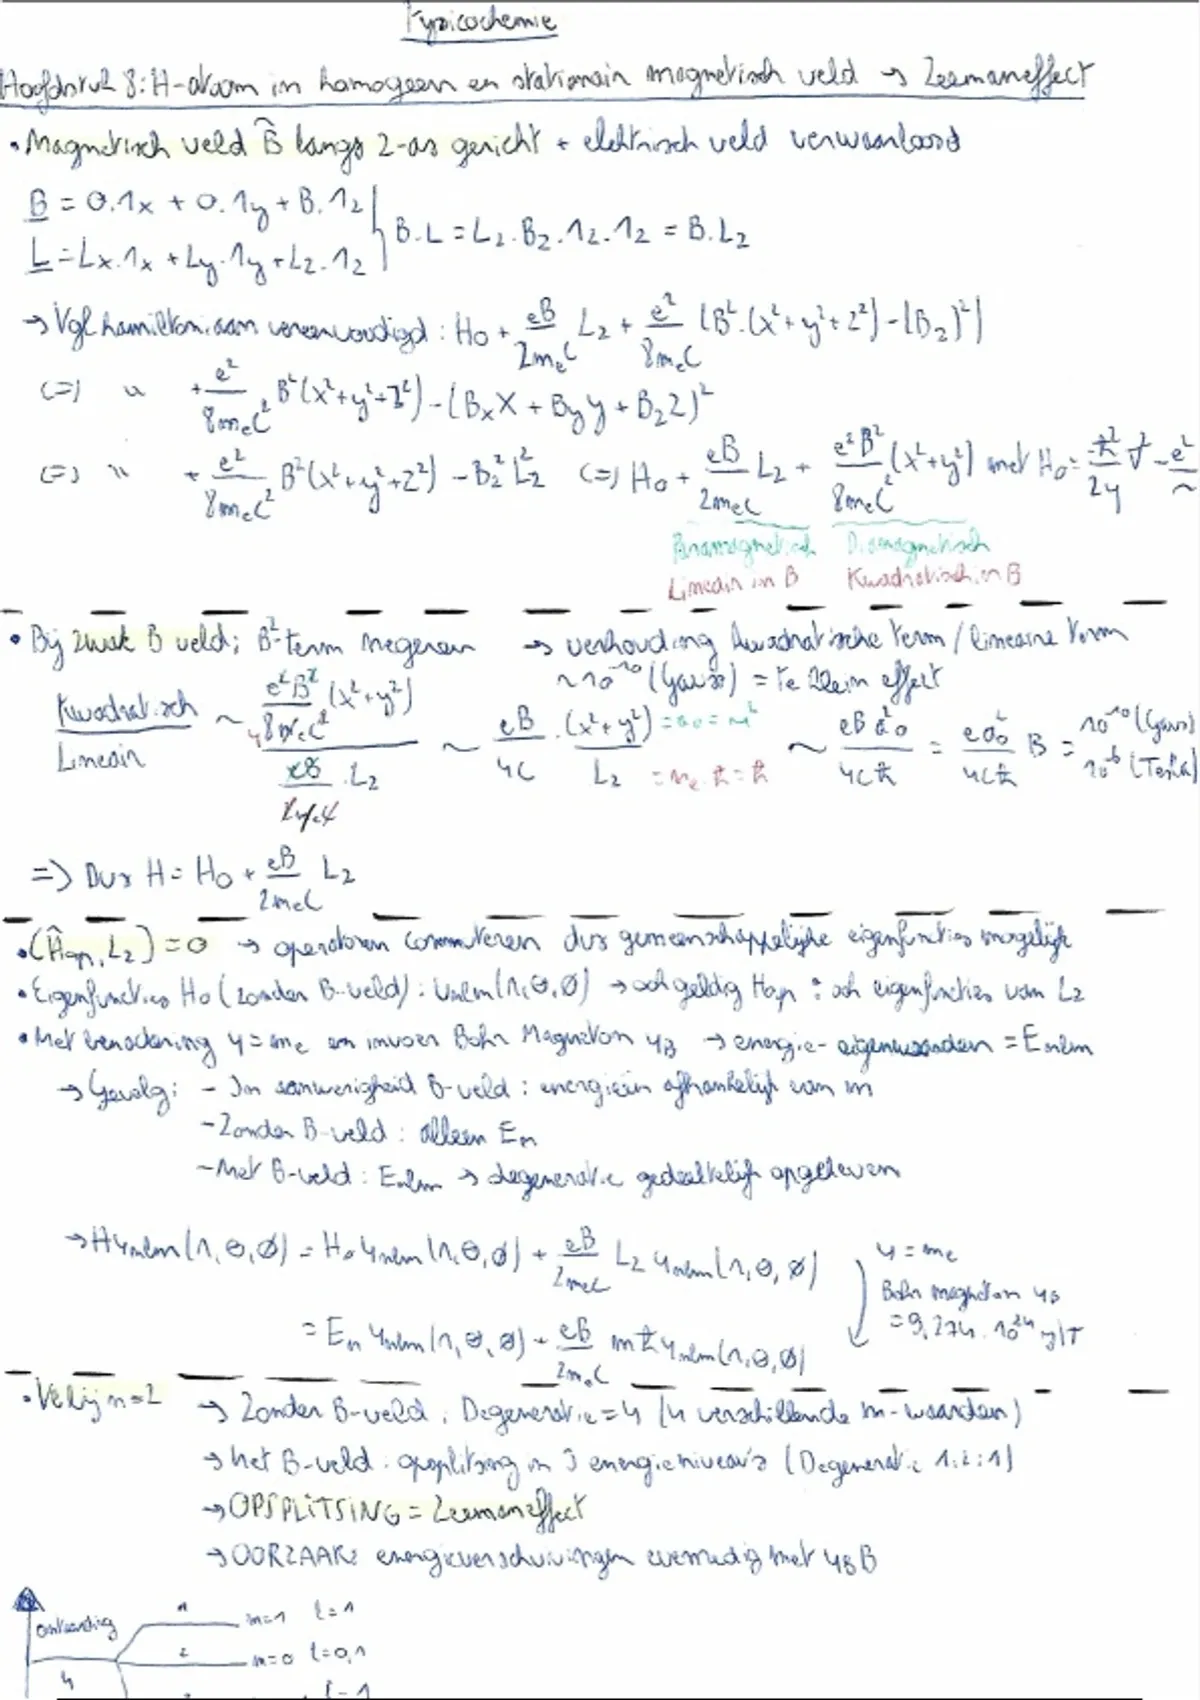 Fysicochemie
Hoofdstuk 8: H-atoom in homogeen en stationair magnetisch veld → Zeemaneffect
• Magnetisch veld B̂ langs z-as gericht + elektrisch veld verwaarloosd
B = 0.1x + 0.1y + B.1z
B.L = Lz.Bz.1z.1z = B.Lz
L = Lx.1x + Ly.1y + Lz.1z
→ Vgl hamiltoniaan vereenvoudigd: H0 + eB/2meC Lz + e²/8meC (B².(x²+y²+z²)-(Bz)²)
<=> " + e²/8meC² B²(x²+y²+z²)-(BxX + Byy + Bzz)²
<=> " + e²/8meC² B²(x²+y²+z²) - Bz²Lz² <=> H0 + eB/2meC Lz + e²B²/8meC² (x²+y²) met H0 = -ħ²/2μ ∇² - e²/~
Paramagnetisch Diamagnetisch
Lineair in B Kwadratisch in B
• Bij zwak B veld: B²-term negeren → verhouding kwadratische term / lineaire term
~10⁻¹⁰ (Gauss) = te klein effect
Kwadratisch/Lineair ~ e²B²/8meC² (x²+y²) / eB/2meC .Lz ~ eB/4C . (x²+y²)/Lz ~ eBa0²/4Cħ = ea0²/4Cħ B = 10⁻¹⁰ (Gauss) 10⁻⁶ (Tesla)
=> Dus H = H0 + eB/2meC Lz
• (Ĥop, Lz) = 0 → operatoren commuteren dus gemeenschappelijke eigenfuncties mogelijk
• Eigenfuncties H0 (zonder B-veld): Unlm(r,θ,ø) → ook geldig Hop: ook eigenfuncties van Lz
• Met benadering μ = me en invoer Bohr Magneton μB → energie-eigenwaarden = Enlm
→ Gevolg: - In aanwezigheid B-veld: energieën afhankelijk van m
- Zonder B-veld: alleen En
- Met B-veld: Enlm → degeneratie gedeeltelijk opgeheven
→ Hψnlm(r,θ,ø) = H0ψnlm(r,θ,ø) + eB/2meC Lz ψnlm(r,θ,ø)
μ = me
Bohr magneton μB
= 9,274.10²⁴ J/T
= En ψnlm(r,θ,ø) + eB/2meC mħψnlm(r,θ,ø)
→ Zonder B-veld: Degeneratie = 4 (4 verschillende m-waarden)
→ Met B-veld: opsplitsing in 3 energieniveau's (Degeneratie 1:2:1)
→ OPSPLITSING = Zeemaneffect
→ OORZAAK: energieverschuivingen evenredig met μBB
1 m=1 l=1
2 m=0 l=0,1
4